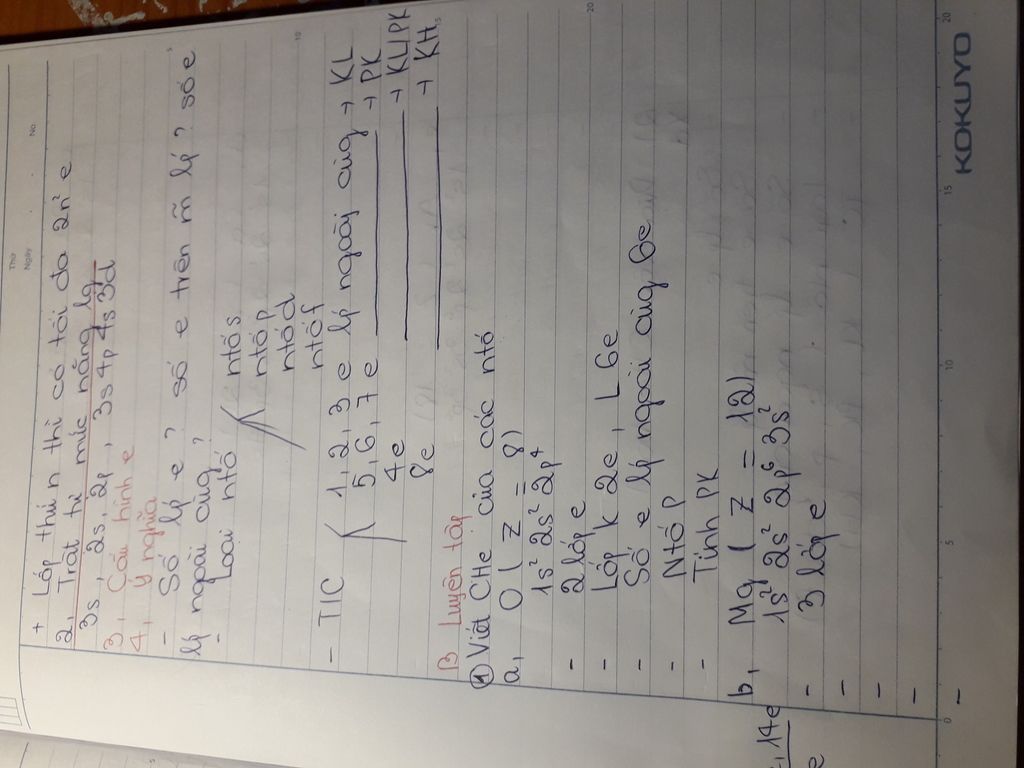 Thứ
Ngày
No.
+ Lớp thứ n thì có tối đa 2n² e
2, Trật tự mức năng lg
3s, 2s, 2p, 3s 4p 4s 3d
3, Cấu hình e
4, Ý nghĩa
- Số lp e? số e trên mỗi lp? số e
lp ngoài cùng?
- Loại ntố
ntố s
ntố p
ntố d
ntố f
- TTC
1, 2, 3 e lp ngoài cùng → KL
5, 6, 7 e → PK
4e → KL/PK
8e → KH
B Luyện tập
① Viết CHe của các ntố
a, O ( Z = 8)
1s² 2s² 2p⁴
- 2 lớp e
- Lớp K 2e, L 6e
- Số e lp ngoài cùng 6e
- Ntố p
- Tính PK
b, Mg ( Z = 12)
1s² 2s² 2p⁶ 3s²
- 3 lớp e
-
-
-
-
14e
e
0 5 10 15 20
KOKUYO